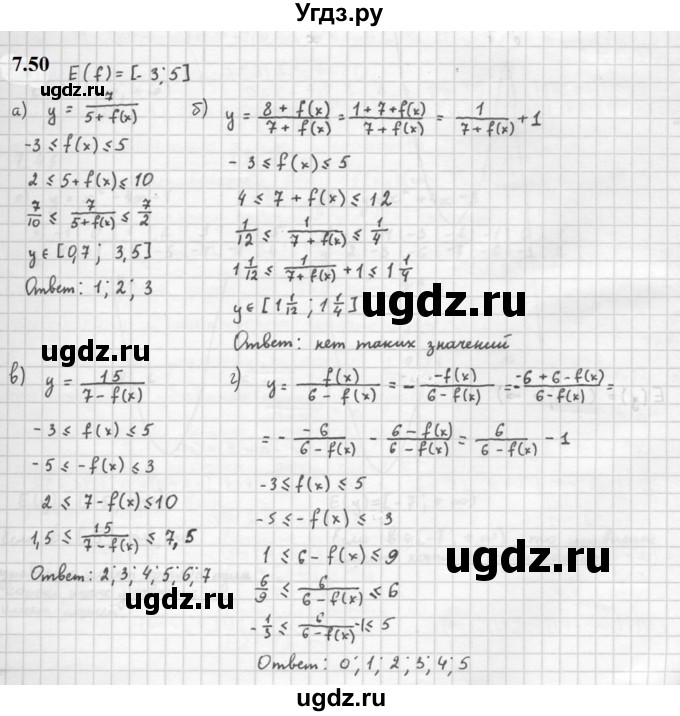 Угдз.ру
7.50 E(f) = [-3; 5]
а) y = 7/(5+f(x))
-3 ≤ f(x) ≤ 5
2 ≤ 5+f(x) ≤ 10
7/10 ≤ 7/(5+f(x)) ≤ 7/2
y ∈ [0,7; 3,5]
Ответ: 1; 2; 3
б) y = (8+f(x))/(7+f(x)) = (1+7+f(x))/(7+f(x)) = 1/(7+f(x)) + 1
-3 ≤ f(x) ≤ 5
4 ≤ 7+f(x) ≤ 12
1/12 ≤ 1/(7+f(x)) ≤ 1/4
1 1/12 ≤ 1/(7+f(x)) + 1 ≤ 1 1/4
y ∈ [1 1/12; 1 1/4]
Ответ: нет таких значений
ugdz.ru
ugdz.ru
в) y = 15/(7-f(x))
-3 ≤ f(x) ≤ 5
-5 ≤ -f(x) ≤ 3
2 ≤ 7-f(x) ≤ 10
1,5 ≤ 15/(7-f(x)) ≤ 7,5
Ответ: 2; 3; 4; 5; 6; 7
ugdz.ru
г) y = f(x)/(6-f(x)) = - -f(x)/(6-f(x)) = - (-6+6-f(x))/(6-f(x)) =
= - -6/(6-f(x)) - (6-f(x))/(6-f(x)) = 6/(6-f(x)) - 1
ugdz.ru
-3 ≤ f(x) ≤ 5
-5 ≤ -f(x) ≤ 3
1 ≤ 6-f(x) ≤ 9
6/9 ≤ 6/(6-f(x)) ≤ 6
-1/3 ≤ 6/(6-f(x)) -1 ≤ 5
ugdz.ru
Ответ: 0; 1; 2; 3; 4; 5
ugdz.ru